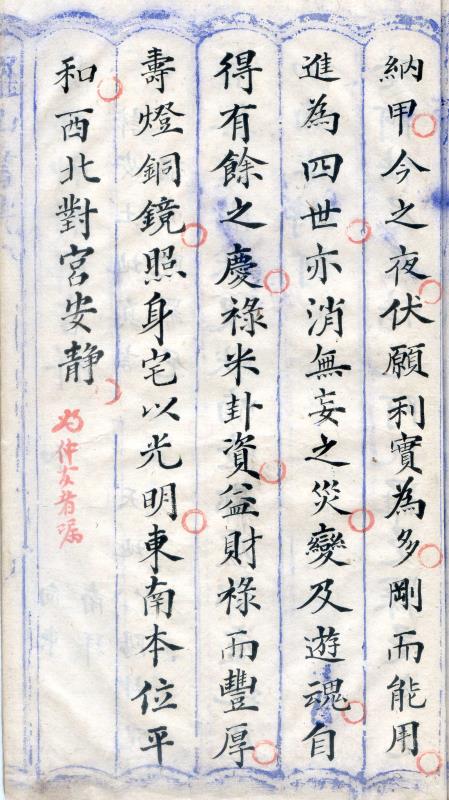 納甲今之夜伏願利實為多剛而能用
進為四世亦消無妄之災變及遊魂自
得有餘之慶祿米卦資益財祿而豐厚
壽燈銅鏡照身宅以光明東南本位平
和西北對宮安靜